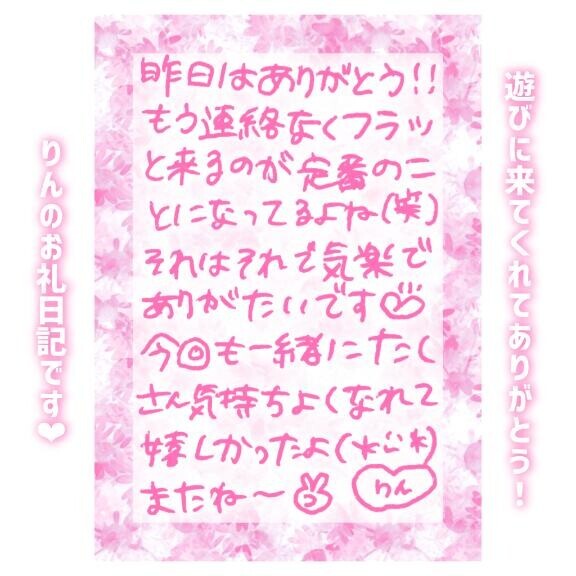 遊びに来てくれてありがとう！
昨日はありがとう!!
もう連絡なくフラッ
と来るのが定番のこ
とになってるよね(笑)
それはそれで気楽で
ありがたいです♡
今回も一緒にたく
さん気持ちよくなれて
嬉しかったよ(*^^*)
またね〜
りん
りんのお礼日記です❤